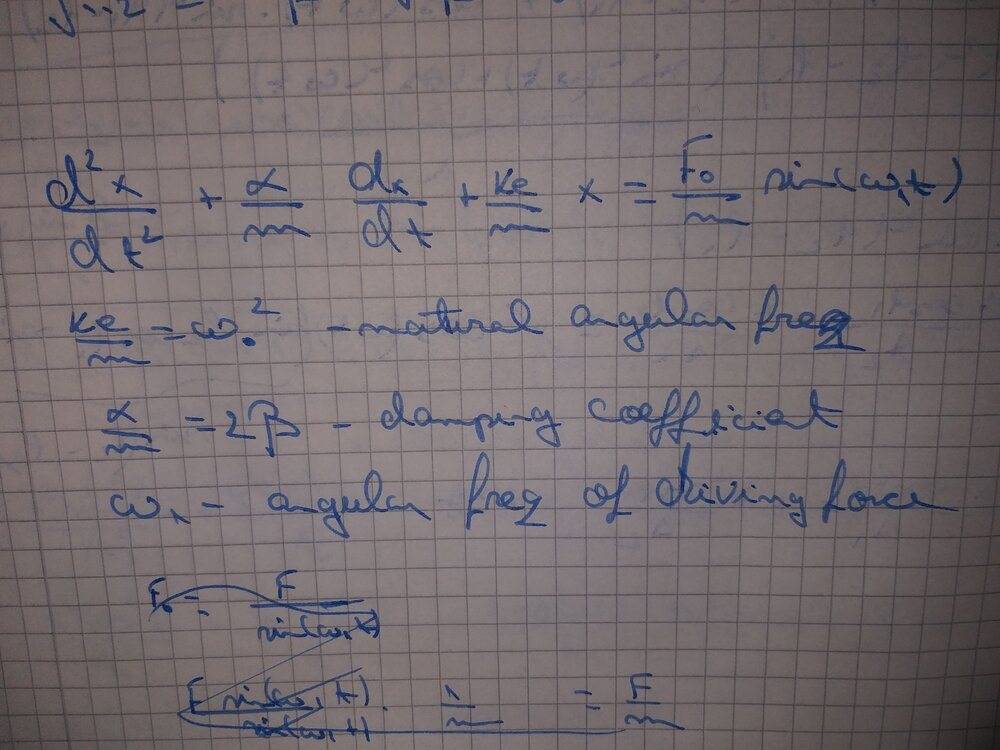 d²x/dt² + α/m dx/dt + ke/m x = F₀/m sin(ω₁t)
ke/m = ω₀² - natural angular freq
α/m = 2β - damping coefficient
ω₁ - angular freq of driving force
F₀ = F/sin(ω₁t)
F sin(ω₁t)/sin(ω₁t) · 1/m = F/m